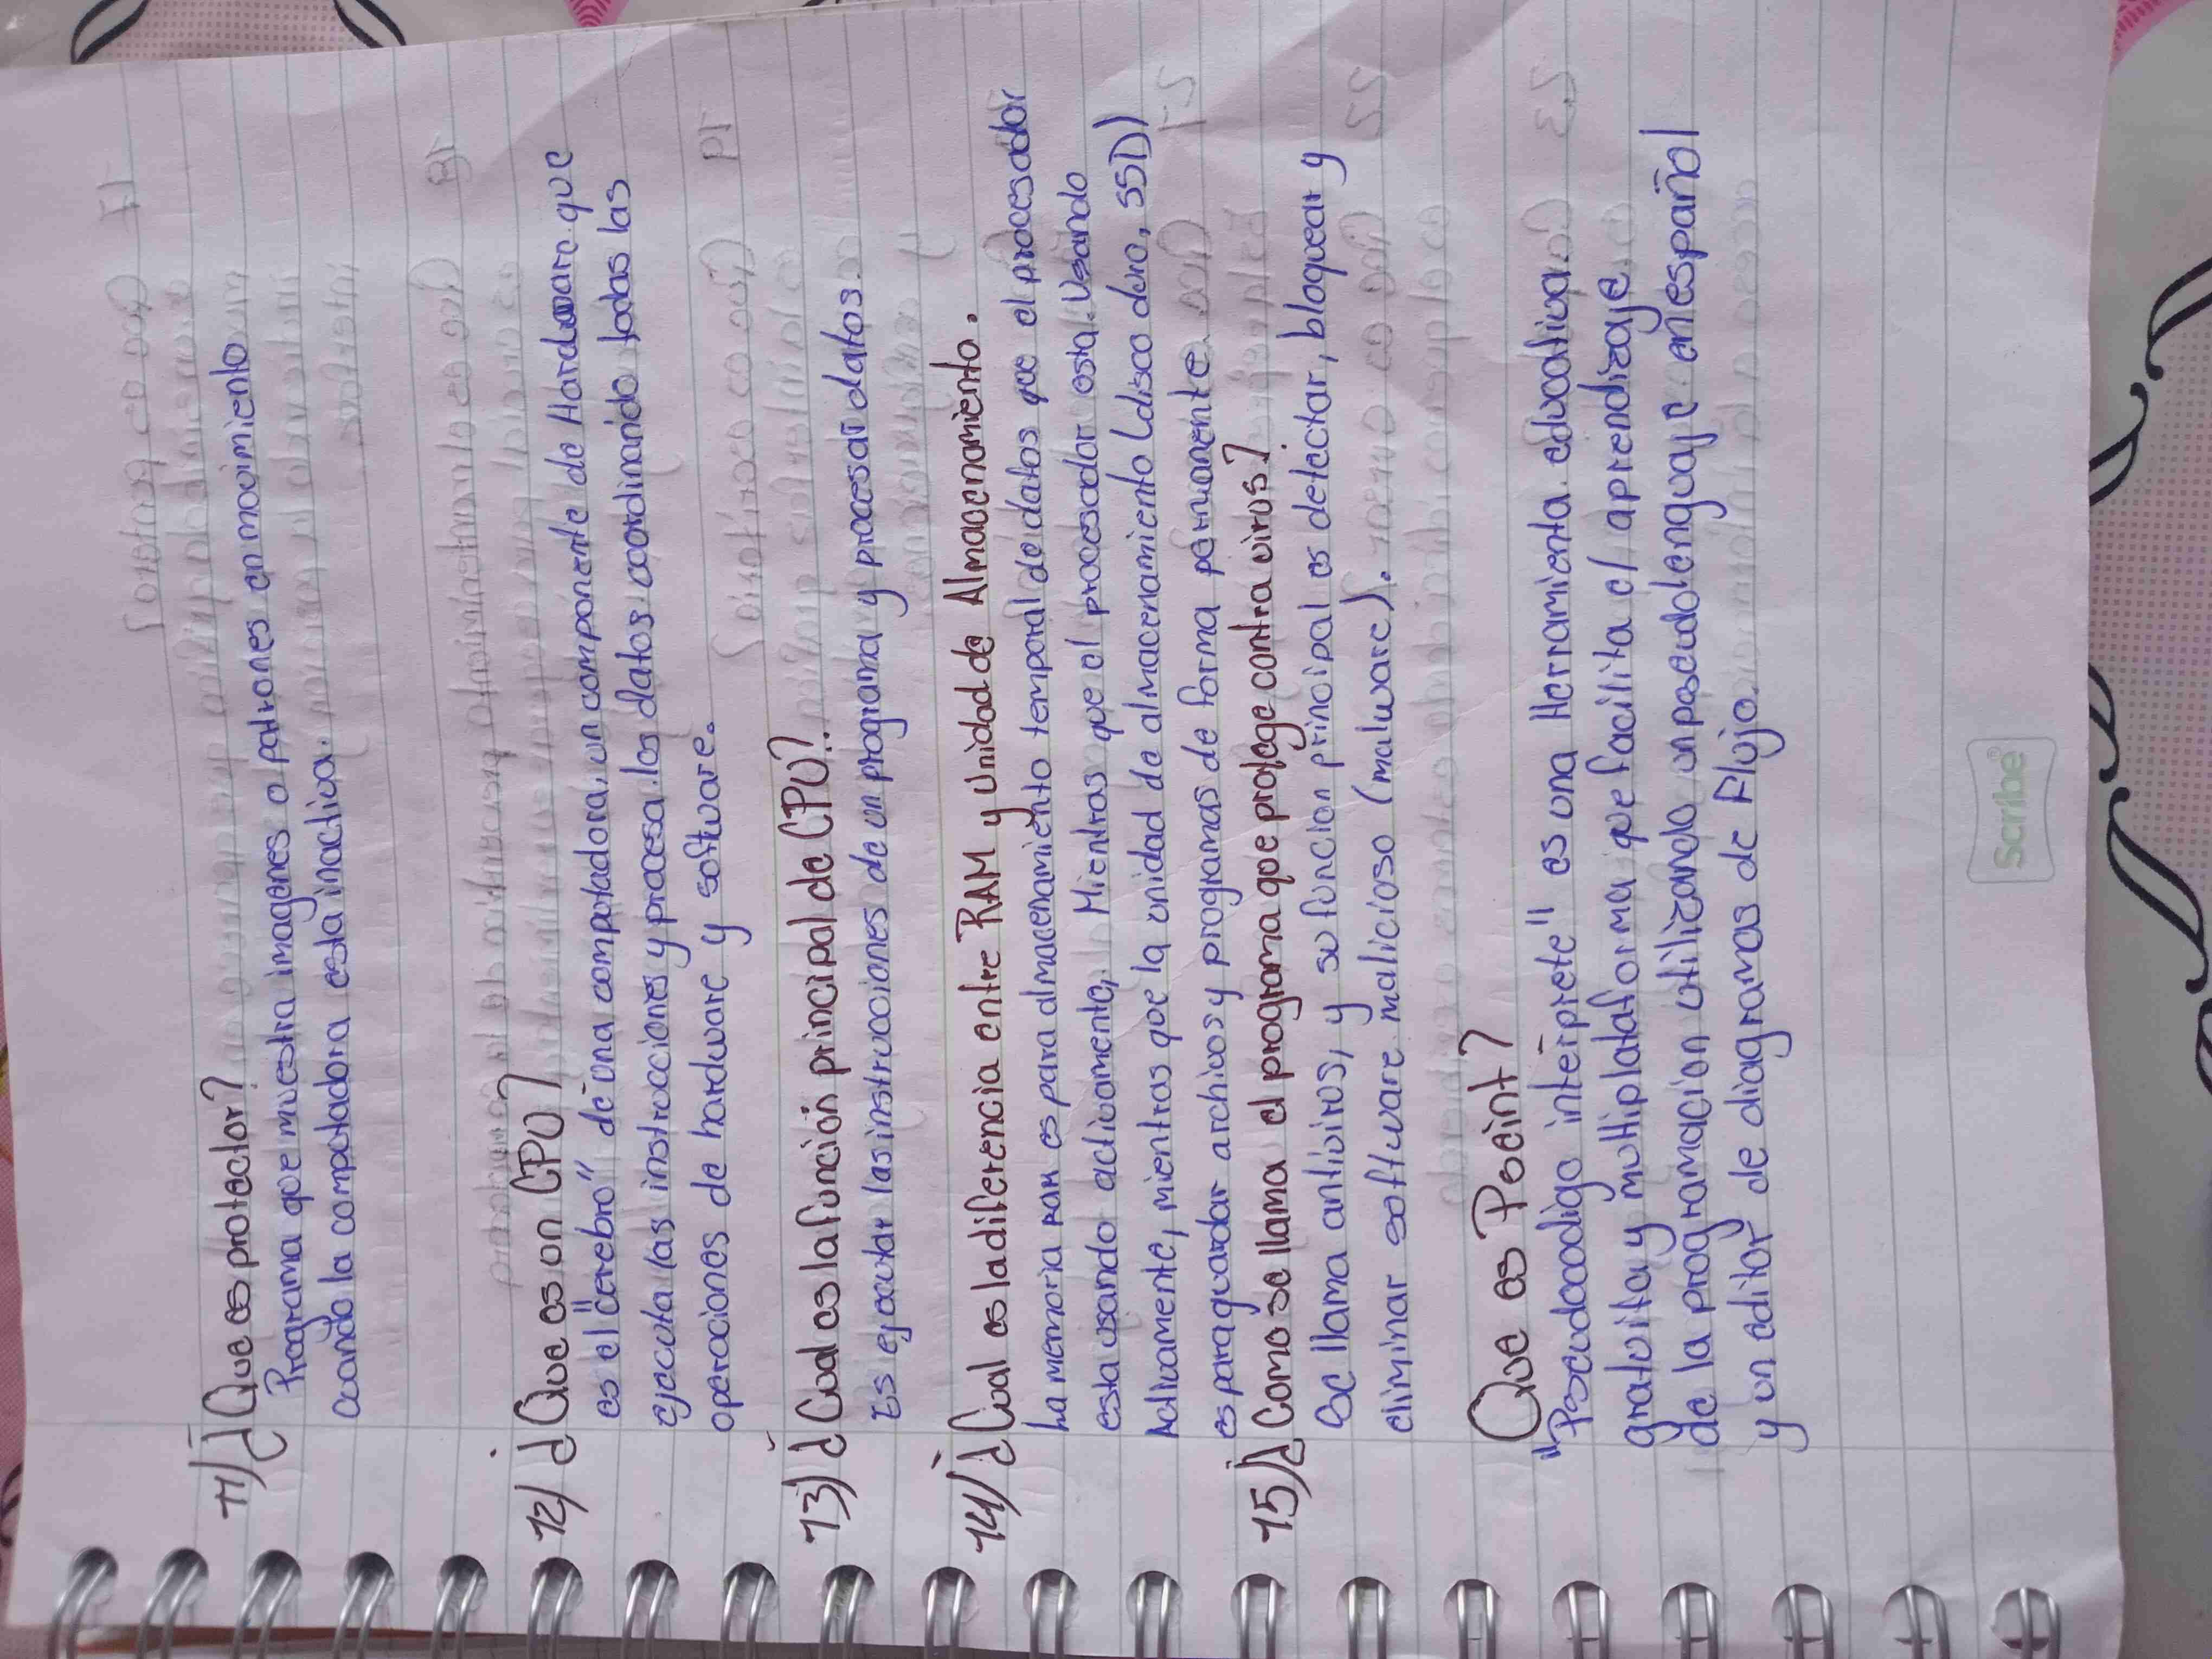 11) ¿Que es protector?
Programa que muestra imagenes o patrones en movimiento
cuando la computadora esta inactiva.
12) ¿Que es un CPU?
es el "cerebro" de una computadora, un componente de Hardware que
ejecuta las instrucciones y procesa los datos coordinando todas las
operaciones de hardware y software.
13) ¿Cual es la función principal de CPU?
Es ejecutar las instrucciones de un programa y procesar datos.
14) ¿Cual es la diferencia entre RAM y Unidad de Almacenamiento.
La memoria RAM es para almacenamiento temporal de datos que el procesador
esta usando activamente, Mientras que el procesador esta Usando
Activamente, mientras que la unidad de almacenamiento (disco duro, SSD)
es para guardar archivos y programas de forma permanente
15) ¿Como se llama el programa que protege contra virus?
Se llama antivirus, y su funcion principal es detectar, bloquear y
eliminar software malicioso (malware).
Que es Pseint?
"Pseudocodigo interprete" es una Herramienta educativa
gratuita y multiplataforma que facilita el aprendizaje
de la programacion utilizando un pseudolenguaje en español
y un editor de diagramas de Flujo.
Scribe